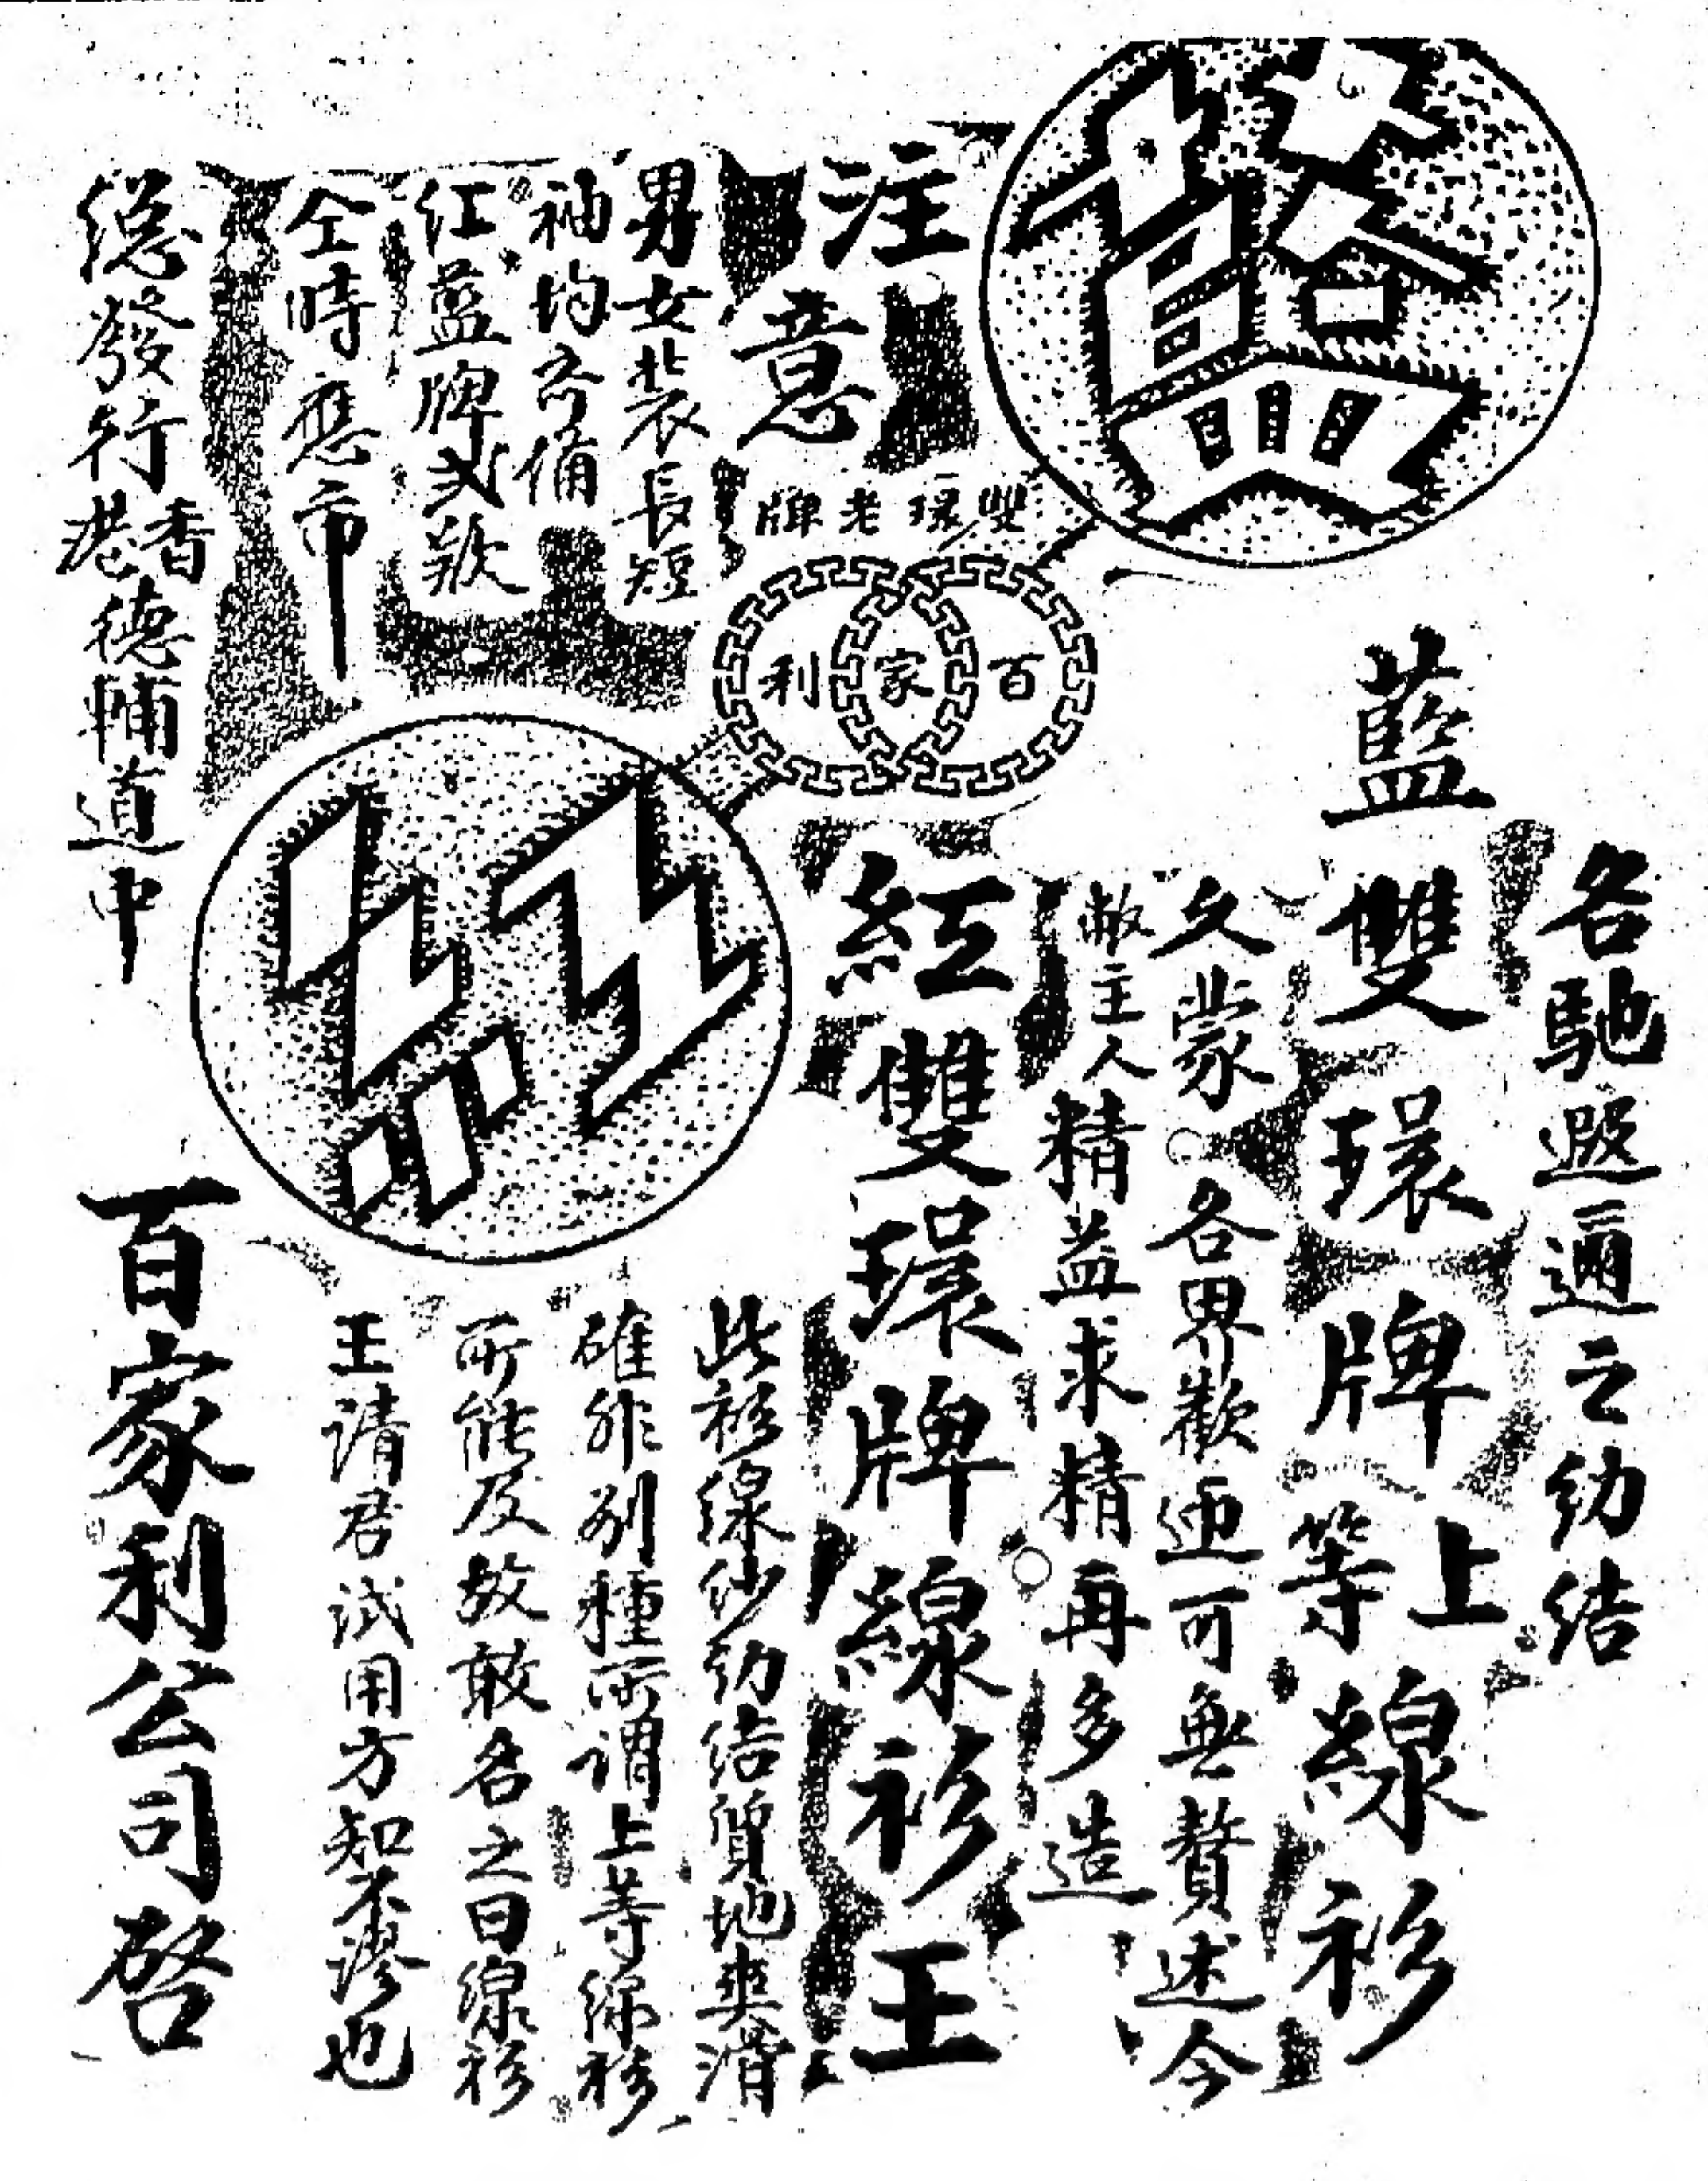 名馳遐邇之幼結
藍雙環牌上等線衫
久蒙各界歡迎可無贅述今
敝主人精益求精再多造
紅雙環牌線衫王
此衫線紗幼結質地爽滑
確非別種所謂上等線衫
所能及故敢名之曰線衫
王請君試用方知不謬也
藍
雙環老牌
百家利
紅
注意
男女裝長短
袖均齐俻
红藍牌弍欵
仝時應市
總發行香港德輔道中
百家利公司啓